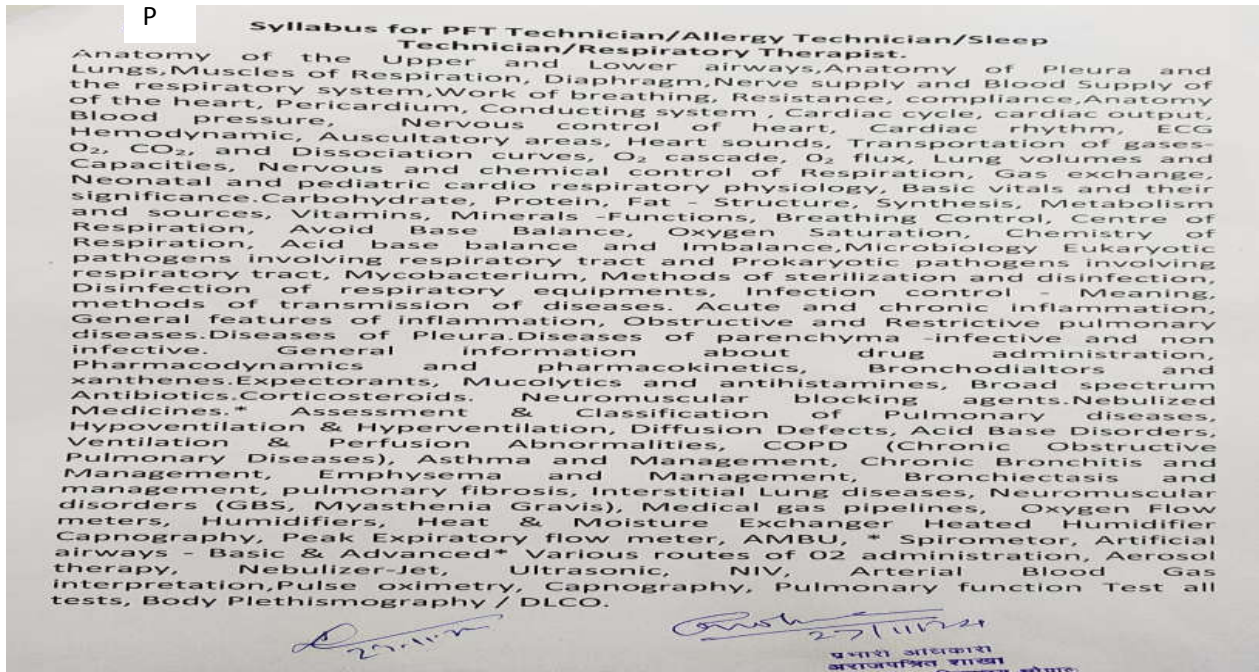 P
Syllabus for PFT Technician/Allergy Technician/Sleep
Technician/Respiratory Therapist.
Anatomy of the Upper and Lower airways,Anatomy of Pleura and
Lungs,Muscles of Respiration, Diaphragm,Nerve supply and Blood Supply of
the respiratory system,Work of breathing, Resistance, compliance,Anatomy
of the heart, Pericardium, Conducting system , Cardiac cycle, cardiac output,
Blood pressure, Nervous control of heart, Cardiac rhythm, ECG
Hemodynamic, Auscultatory areas, Heart sounds, Transportation of gases-
O₂, CO₂, and Dissociation curves, O₂ cascade, O₂ flux, Lung volumes and
Capacities, Nervous and chemical control of Respiration, Gas exchange,
Neonatal and pediatric cardio respiratory physiology, Basic vitals and their
significance.Carbohydrate, Protein, Fat - Structure, Synthesis, Metabolism
and sources, Vitamins, Minerals -Functions, Breathing Control, Centre of
Respiration, Avoid Base Balance, Oxygen Saturation, Chemistry of
Respiration, Acid base balance and Imbalance,Microbiology Eukaryotic
pathogens involving respiratory tract and Prokaryotic pathogens involving
respiratory tract, Mycobacterium, Methods of sterilization and disinfection,
Disinfection of respiratory equipments, Infection control - Meaning,
methods of transmission of diseases. Acute and chronic inflammation,
General features of inflammation, Obstructive and Restrictive pulmonary
diseases.Diseases of Pleura.Diseases of parenchyma -infective and non
infective. General information about drug administration,
Pharmacodynamics and pharmacokinetics, Bronchodialtors and
xanthenes.Expectorants, Mucolytics and antihistamines, Broad spectrum
Antibiotics.Corticosteroids. Neuromuscular blocking agents.Nebulized
Medicines.* Assessment & Classification of Pulmonary diseases,
Hypoventilation & Hyperventilation, Diffusion Defects, Acid Base Disorders,
Ventilation & Perfusion Abnormalities, COPD (Chronic Obstructive
Pulmonary Diseases), Asthma and Management, Chronic Bronchitis and
Management, Emphysema and Management, Bronchiectasis and
management, pulmonary fibrosis, Interstitial Lung diseases, Neuromuscular
disorders (GBS, Myasthenia Gravis), Medical gas pipelines, Oxygen Flow
meters, Humidifiers, Heat & Moisture Exchanger Heated Humidifier
Capnography, Peak Expiratory flow meter, AMBU, * Spirometor, Artificial
airways - Basic & Advanced* Various routes of 02 administration, Aerosol
therapy, Nebulizer-Jet, Ultrasonic, NIV, Arterial Blood Gas
interpretation,Pulse oximetry, Capnography, Pulmonary function Test all
tests, Body Plethismography / DLCO.
27/11/24
प्रभारी अधिकारी
अराजपत्रित शाखा